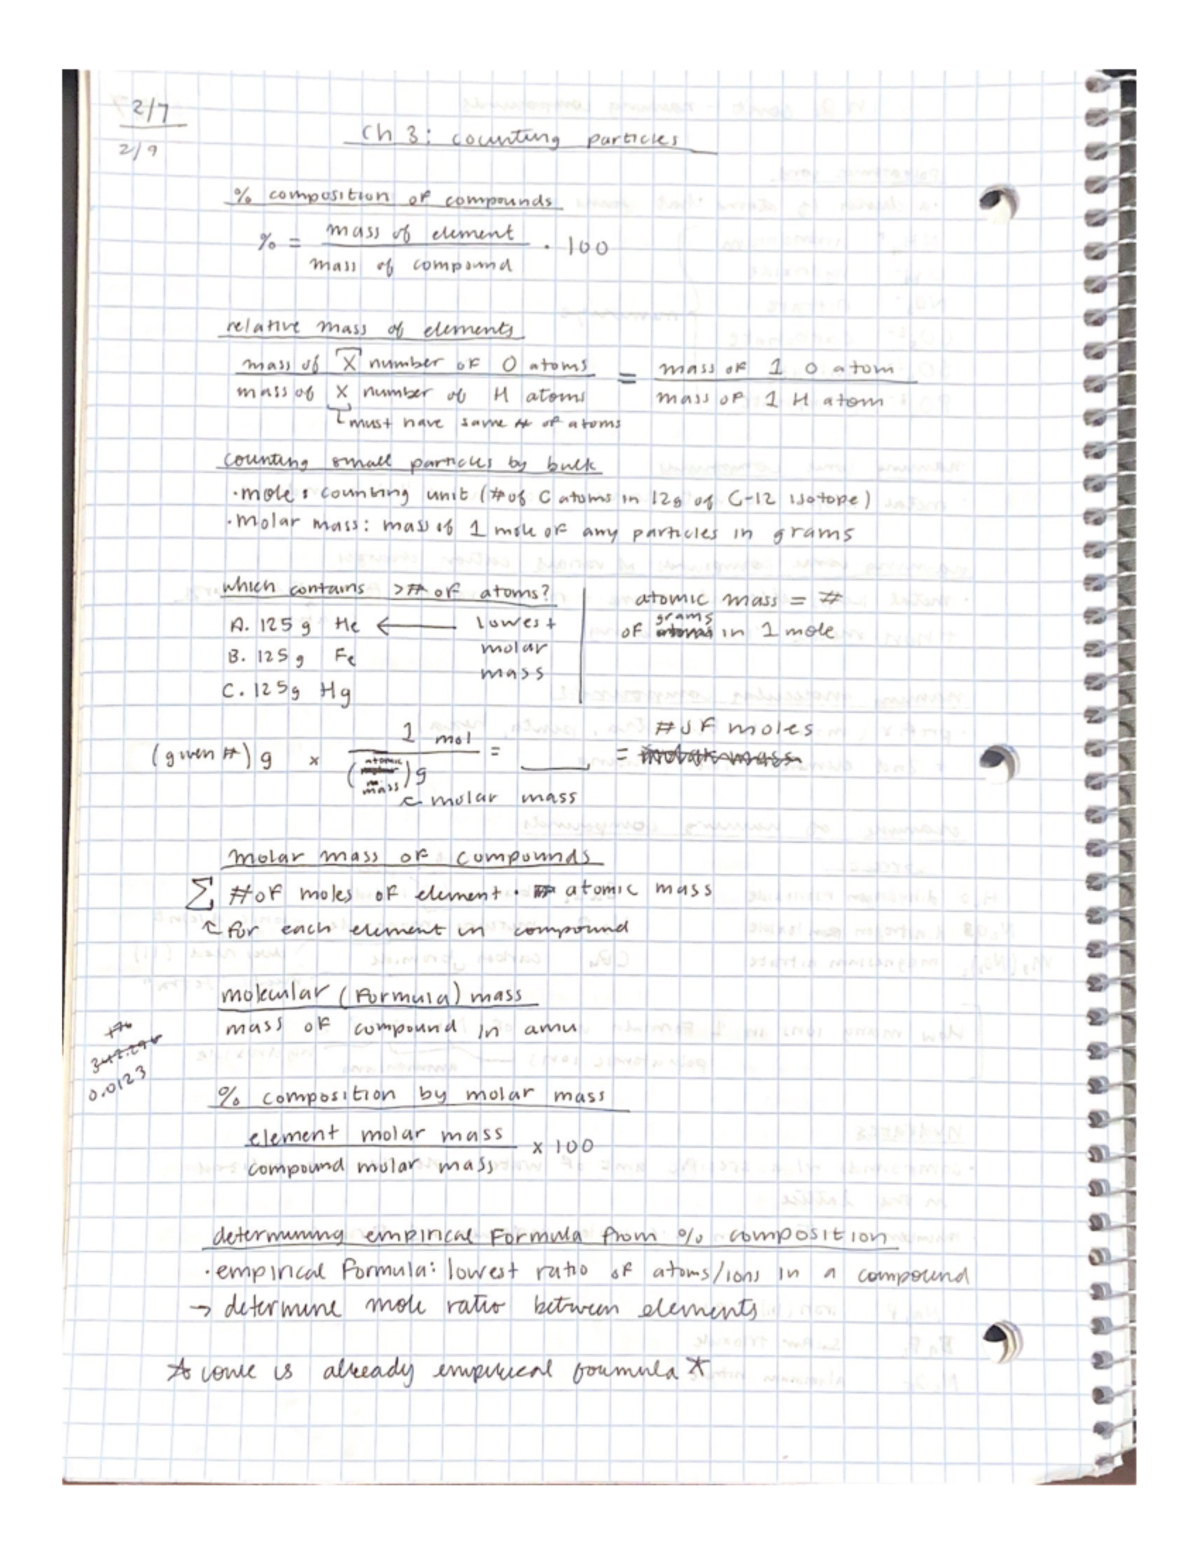 2/7
2/9
Ch 3: counting particles
% composition of compounds
% = mass of element / mass of compound · 100
relative mass of elements
mass of X number of O atoms / mass of X number of H atoms = mass of 1 O atom / mass of 1 H atom
must have same # of atoms
counting small particles by bulk
· mole: counting unit (# of C atoms in 12g of C-12 isotope)
· molar mass: mass of 1 mole of any particles in grams
which contains > # of atoms?
A. 125 g He ← lowest molar mass
B. 125 g Fe
C. 125g Hg
atomic mass = #
of grams in 1 mole
(given #) g x 1 mol / (atomic mass) g = ____ = # of moles
molar mass
molar mass of compounds
∑ # of moles of element · atomic mass
for each element in compound
molecular (formula) mass
mass of compound in amu
0.0123
% composition by molar mass
element molar mass / compound molar mass x 100
determining empirical formula from % composition
· empirical formula: lowest ratio of atoms/ions in a compound
→ determine mole ratio between elements
* ionic is already empirical formula *